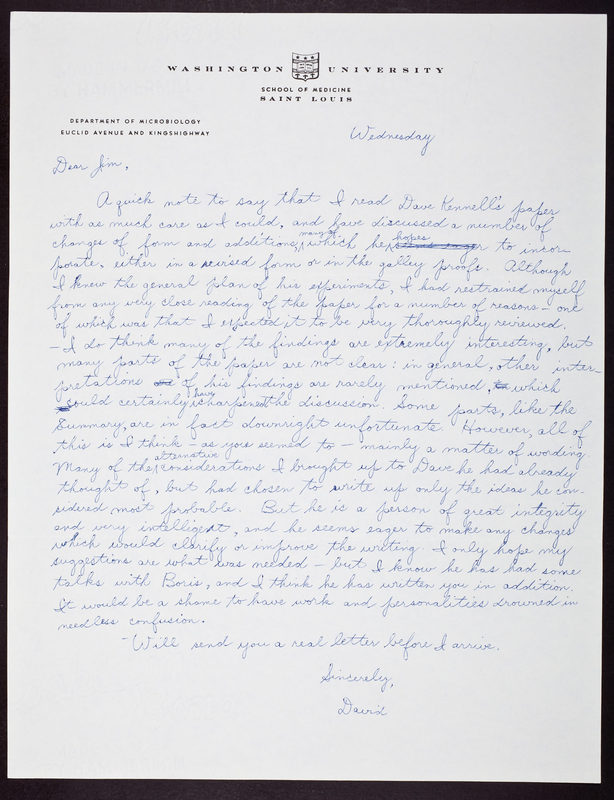 WASHINGTON UNIVERSITY
SCHOOL OF MEDICINE
SAINT LOUIS
DEPARTMENT OF MICROBIOLOGY
EUCLID AVENUE AND KINGSHIGHWAY
Wednesday
Dear Jim,
A quick note to say that I read Dave Kennell's paper
with as much care as I could, and have discussed a number of
changes of form and additions, many of which he hopes to incor-
porate, either in a revised form or in the galley proofs. Although
I knew the general plan of his experiments, I had restrained myself
from any very close reading of the paper for a number of reasons — one
of which was that I expected it to be very thoroughly reviewed.
— I do think many of the findings are extremely interesting, but
many parts of the paper are not clear: in general, other inter-
pretations of his findings are rarely mentioned, which
would certainly have sharpened the discussion. Some parts, like the
Summary, are in fact downright unfortunate. However, all of
this is I think — as you seemed to — mainly a matter of wording.
Many of the alternative considerations I brought up to Dave he had already
thought of, but had chosen to write up only the ideas he con-
sidered most probable. But he is a person of great integrity
and very intelligent, and he seems eager to make any changes
which would clarify or improve the writing. I only hope my
suggestions are what was needed — but I know he has had some
talks with Boris, and I think he has written you in addition.
It would be a shame to have work and personalities drowned in
needless confusion.
— Will send you a real letter before I arrive.
Sincerely,
David